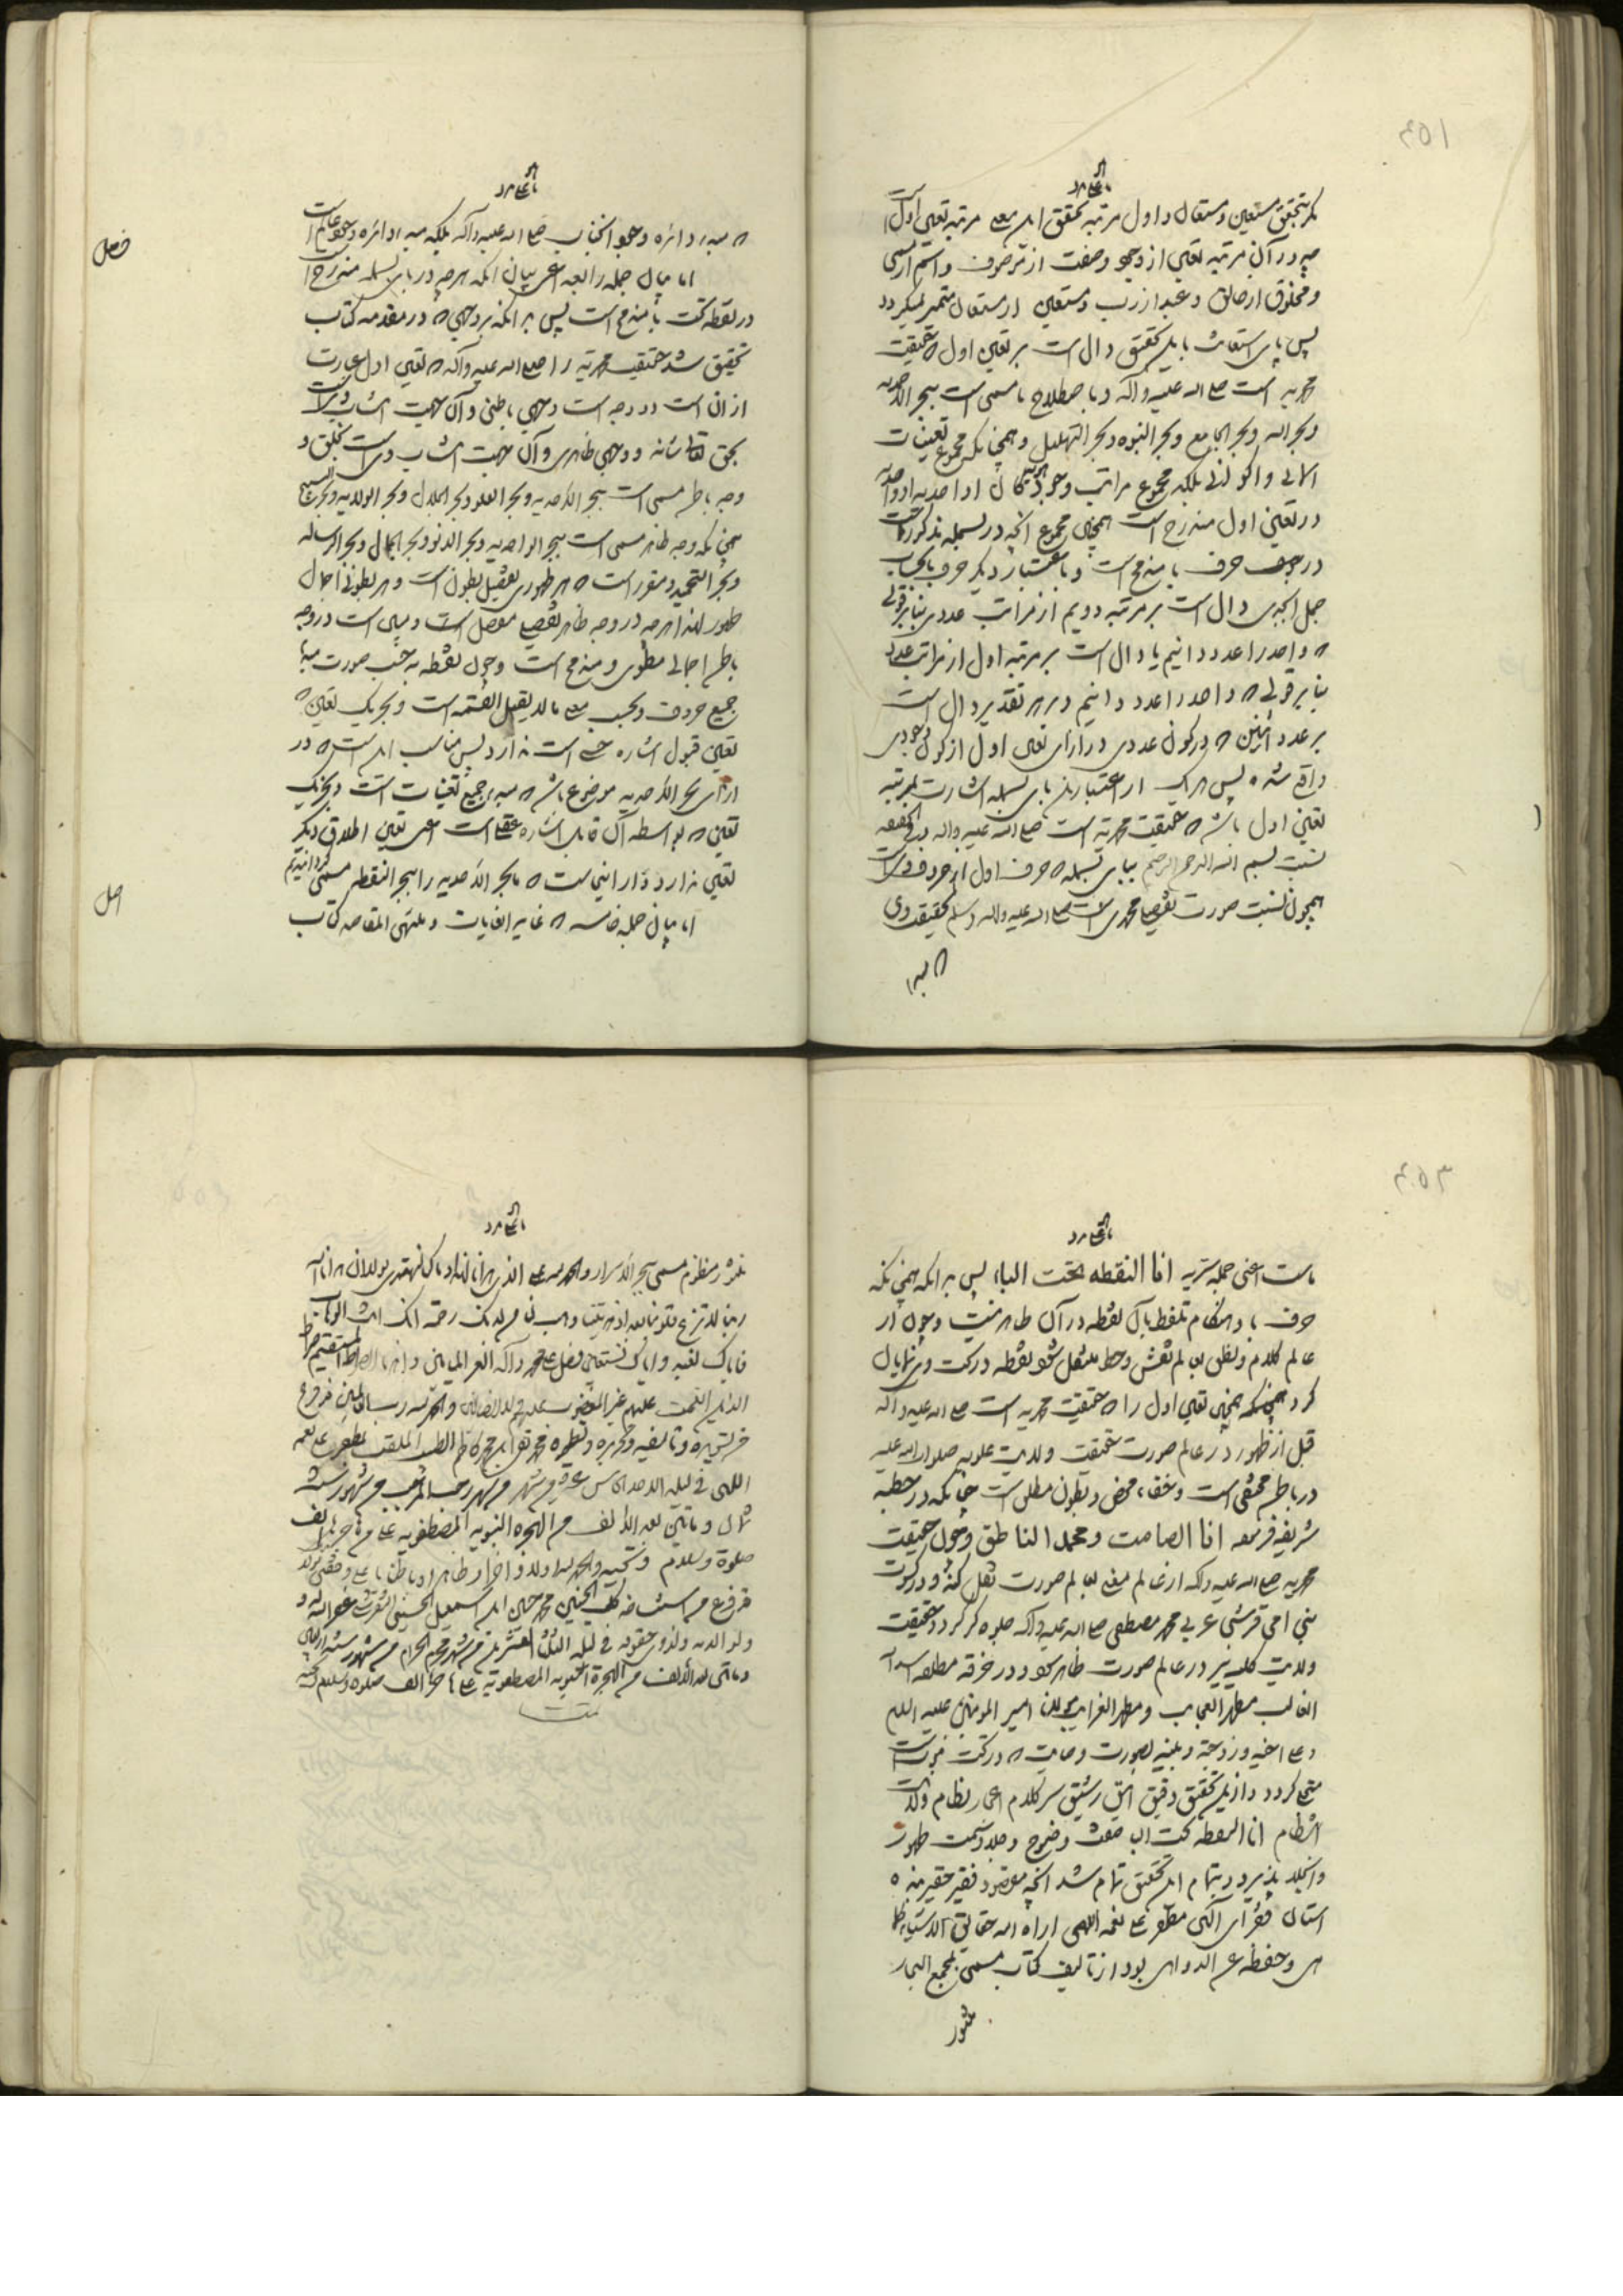 مگر بتحقق مستعین و مستعان و اول مرتبه تحقق این معنی مرتبه تعین اول است
چه در آن مرتبه تعین از وجود و صفت از موصوف و اسم از مسمی
و مخلوق از خالق و عبد از رب و مستعین از مستعان متمیز میگردد
پس بای استعانت باین تحقیق دال است بر تعین اول ه حقیقت
محمدیه است صلی الله علیه وآله و باصطلاح ما مسمی است ببحر الاحدیه
و بحر الله و بحر الجامع و بحر النبوه و بحر التهلیل و همچنانکه مجموع تعینات
الهی و اکوانی بلکه مجموع مراتب
در تعین اول مندرج است همچنین مجموع آنچه در بسمله مذکور است
در جوف حرف با مندمج است و باعتبار دیگر حرف با بحساب
جمل ابجدی دال است بر مرتبه دویم از مراتب عددی بنابر قولی
ه واحد را عدد دانیم یا دال است بر مرتبه اول از مراتب عدد
بنابر قولی ه واحد را عدد دانیم و بر هر تقدیر دال است
بر عدد اثنین ه در کون عددی در ازای تعین اول از کون وجودی
واقع شده پس هر یک از اعتبارین بای بسمله اشارت بمرتبه
تعین اول باشد ه حقیقت محمدیه است صلی الله علیه وآله و فی الحقیقه
نسبت بسم الله الرحمن الرحیم ببای بسمله ه حرف اول از حروف وی است
همچون نسبت صورت تفصیل محمدی است صلی الله علیه وآله وسلم بحقیقت وی
ه مبدا
ه مبدا دائره وجود آنجناب صلی الله علیه وآله بلکه مبدا دائره وجود عالم است
فصل
اما بیان جمله رابعه اعنی بیان آنکه هرچه در بای بسمله مندرج است
در نقطه تحت با مندمج است پس بدانکه بر وجهی ه در مقدمه کتاب
تحقیق شد حقیقت محمدیه را صلی الله علیه وآله ه تعین اول عبارت
از آن است دو وجه است وجهی باطنی و آن جهت انتساب وی است
بحق تعالی شانه و وجهی ظاهری و آن جهت انتساب وی است بخلق و
وجه باطن مسمی است ببحر الاحدیه و بحر العلو و بحر الجلال و بحر الولایه و بحر التسبیح
همچنانکه وجه ظاهر مسمی است ببحر الواحدیه و بحر الدنو و بحر الجمال و بحر الرساله
و بحر التحمید و مقرر است ه هر ظهوری تفصیل بطون است و هر بطونی اجمال
ظهور لهذا هرچه در وجه ظاهر تفصیلا مفصل است و مبین است در وجه
باطن اجمالی مطوی و مندمج است و چون نقطه بحسب صورت مبدا
جمیع حروف و بحسب معنی ما لا یقبل القسمه است و بجز یک تعین ه
تعین قبول اشاره حسی است ندارد پس مناسب این است ه در
ازای بحر الاحدیه موضوع باشد ه مبدا جمیع تعینات است و بجز یک
تعین ه بواسطه آن قابل اشاره عقلی است اعنی تعین اطلاق دیگر
تعین ندارد و از اینجاست ه ما بحر الاحدیه را ببحر النقطه مسمی گردانیدیم
اصل
اما بیان جمله خامسه ه غایه الغایات و منتهی المقاصد کتاب
ماست اعنی جمله سریه انا النقطه تحت الباء پس بدانکه همچنانکه
حرف با در هنگام تلفظ بآن نقطه در آن ظاهر نیست و چون از
عالم کلام و نطق بعالم نقش و خط منتقل شود نقطه در تحت وی نمایان
گردد همچنین تعین اول را ه حقیقت محمدیه است صلی الله علیه وآله
قبل از ظهور در عالم صورت حقیقت ولایت علویه صلوات الله علیه
در باطن مختفی است و خفاء محض و بطون مطلق است چنانکه در خطبه
شریفه فرموده انا الصامت و محمد الناطق و چون حقیقت
محمدیه صلی الله علیه وآله از عالم معنی بعالم صورت نقل کند و در کسوت
نبی امی قرشی عربی محمد مصطفی صلی الله علیه وآله جلوه گر گردد حقیقت
ولایت کلیه نیز در عالم صورت ظاهر شود و در خرقه مطلقه اسد الله
الغالب مظهر العجایب و مظهر الغرایب مولانا امیر المؤمنین علیه السلام
و علی اخیه و زوجته و بنیه بصورت وصایت ه در تحت نبوت است
متجلی گردد و ازین تحقیق دقیق انیق رشیق سر کلام اعجاز نظام ولایت
انتظام انا النقطه تحت الباء صفت وضوح و جلا و سمت ظهور
و انجلا پذیرد و بتمام این تحقیق تمام شد آنچه مقصود فقیر حقیر بنده
آستان فقرای الهی مظفر علی نعمه اللهی اراه الله حقایق الاشیاء کما
هی و حفظه عن الدواهی بود از تالیف کتاب مسمی بمجمع البحار
منثور
منظوم مسمی ببحر الاسرار والحمد لله علی الذی هدانا لهذا وما کنا لنهتدی لولا ان هدانا الله
ربنا لا تزغ قلوبنا بعد اذ هدیتنا وهب لنا من لدنک رحمه انک انت الوهاب
فایاک نعبد وایاک نستعین فصل علی محمد وآله الغر المیامین واهدنا الصراط المستقیم صراط
الذین انعمت علیهم غیر المغضوب علیهم ولا الضالین والحمد لله رب العالمین فرغ
من تسویده وتالیفه وتحریره محمد تقی ابن محمد کاظم الطبیب الملقب بمظفر علی نعمه
اللهی فی لیله الاحد من شهر رجب المرجب من شهور سنه
ثمان ومائتین بعد الالف من الهجره النبویه المصطفویه علی هاجرها الف
صلوة وسلام وتحیه والحمد لله اولا وآخرا وظاهرا وباطنا
محمد حسین ابن اسمعیل الحسینی غفر الله له و
ولوالدیه ولذوی حقوقه فی لیله الثلث العشرین من شهر محرم الحرام من شهور سنه
ومائتین بعد الالف من الهجرة النبویه المصطفویه علی هاجرها الف صلوه وسلام وتحیه
تمت